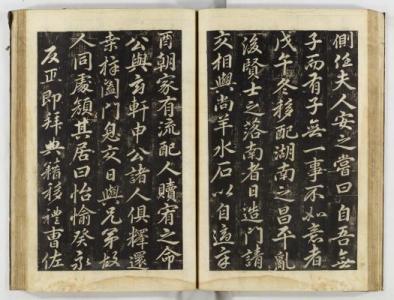 側任夫人安之嘗曰自吾無
子而有子無一事不如意者
戊午冬移配湖南之昌平亂
後賢士之落南者日造門請
交相與尚羊水石以自適辛
酉朝家有流配人贖宥之命
公與玄軒申公諸人俱擇還
桑梓闔門息交日與兄弟故
人同處頟其居曰怡愉癸亥
反正即拜典籍移禮曹佐